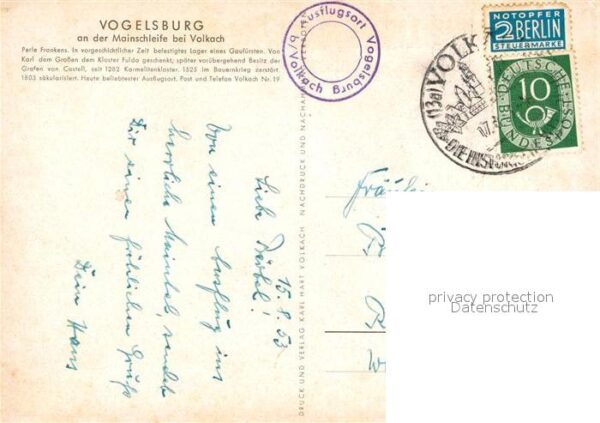 VOGELSBURG
an der Mainschleife bei Volkach
Perle Frankens. In vorgeschichtlicher Zeit befestigtes Lager eines Gaufürsten. Von
Karl dem Großen dem Kloster Fulda geschenkt; später vorübergehend Besitz der
Grafen von Castell, seit 1282 Karmeliterkloster. 1525 im Bauernkrieg zerstört.
1803 säkularisiert. Heute beliebtester Ausflugsort. Post und Telefon Volkach Nr. 19
Ausflugsort Vogelsburg
b/Volkach
NOTOPFER
2 BERLIN
STEUERMARKE
DEUTSCHE
BUNDESPOST
10
(13a) VOLKACH
15.8.53
Liebe
Von einem Ausflug ins
herrliche Maintal, sendet
Dir einen fröhlichen Gruß
Dein Hans
DRUCK UND VERLAG KARL HART VOLKACH
Fräulein
privacy protection
Datenschutz